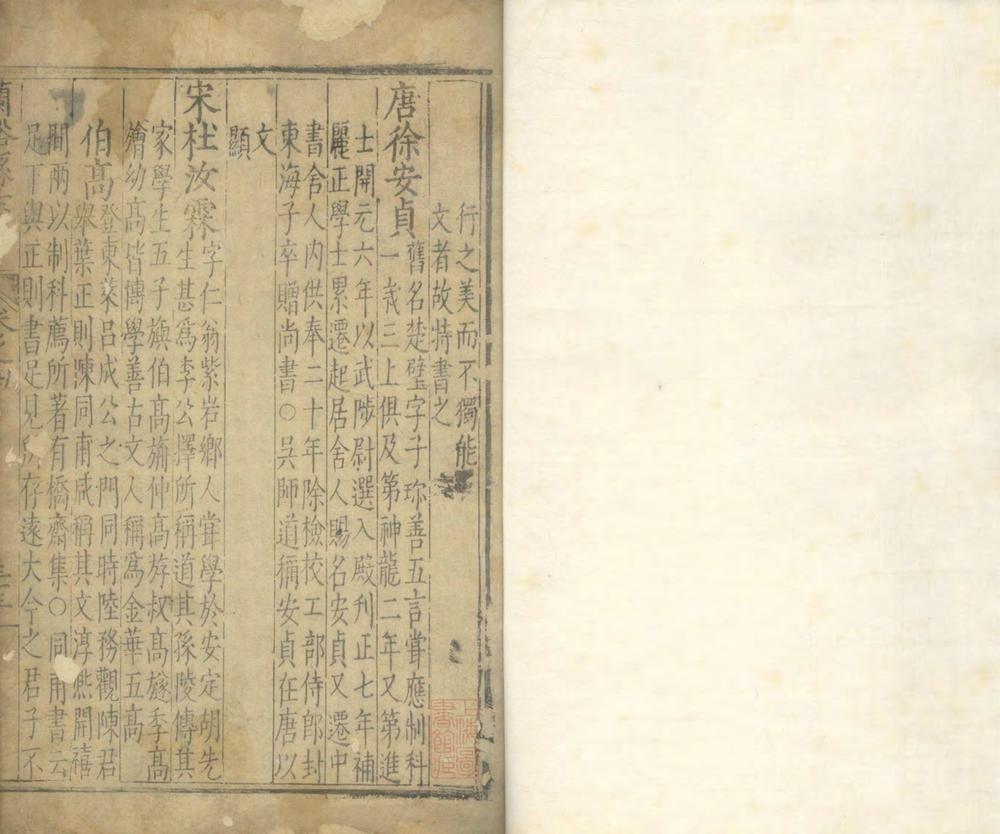 行之美而不獨能
文者故特書之
唐徐安貞舊名楚璧字子珍善五言嘗應制科
一歲三上俱及第神龍二年又第進
士開元六年以武陟尉選入殿刋正七年補
麗正學士累遷起居舍人賜名安貞又遷中
書舍人內供奉二十年除檢校工部侍郎封
東海子卒贈尚書○吳師道稱安貞在唐以
文
顯
宋杜汝霖字仁翁紫岩鄉人甞學於安定胡先
生甚爲李公擇所稱道其孫陵傳其
家學生五子旟伯高斿仲高斿叔高旞季高
旝幼高皆博學善古文人稱爲金華五高
伯高登東萊呂成公之門同時陸務觀陳君
舉葉正則陳同甫咸稱其文淳熙開禧
間兩以制科薦所著有橋齋集○同甫書云
足下與正則書足見所存遠大今之君子不
蘭谿縣志 卷之
上海圖書館藏